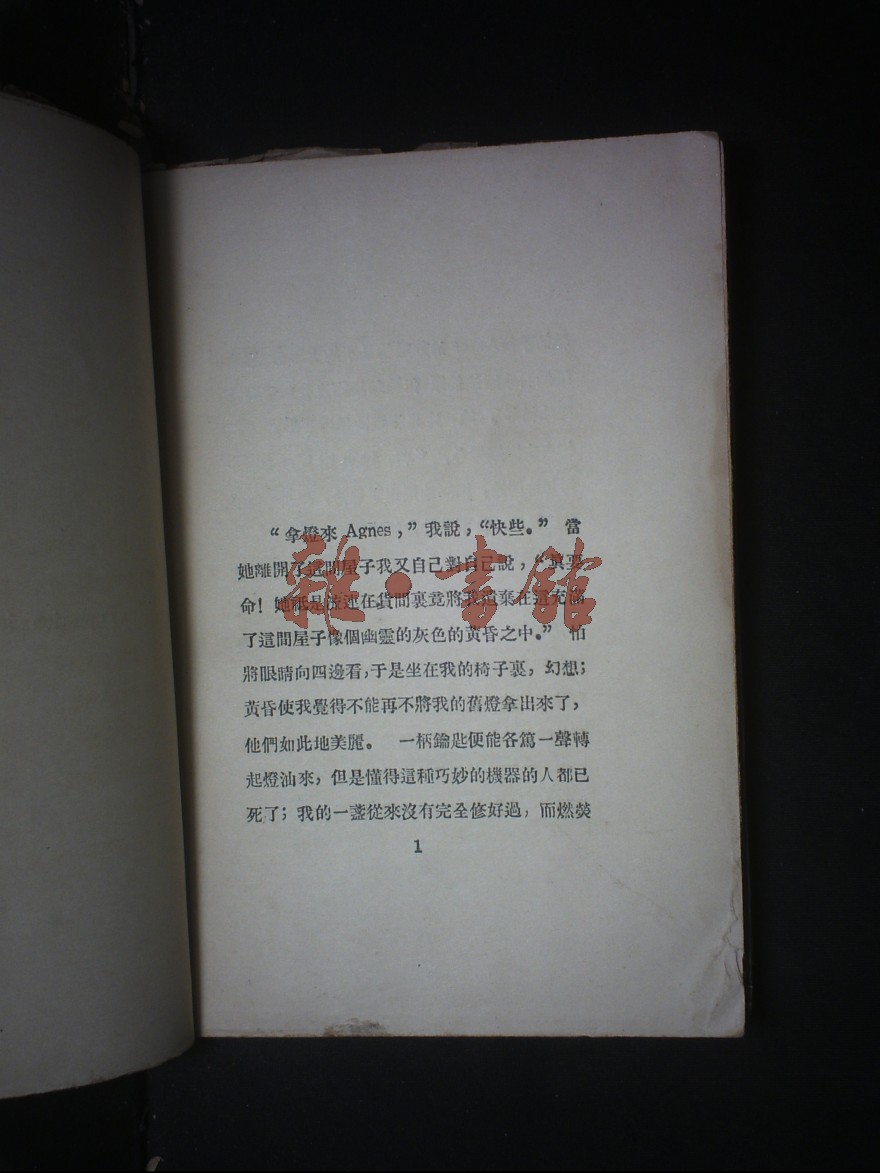 “拿燈來 Agnes，”我說，“快些。” 當
她離開了這間屋子我又自己對自己說，“真要
命！她祇是流連在貨間裏竟將我遺棄在這充滿
了這間屋子像個幽靈的灰色的黃昏之中。” 怕
將眼睛向四邊看，于是坐在我的椅子裏，幻想；
黃昏使我覺得不能再不將我的舊燈拿出來了，
他們如此地美麗。 一柄鑰匙便能各篤一聲轉
起燈油來，但是懂得這種巧妙的機器的人都已
死了；我的一盞從來沒有完全修好過，而燃熒
1
雜·書館